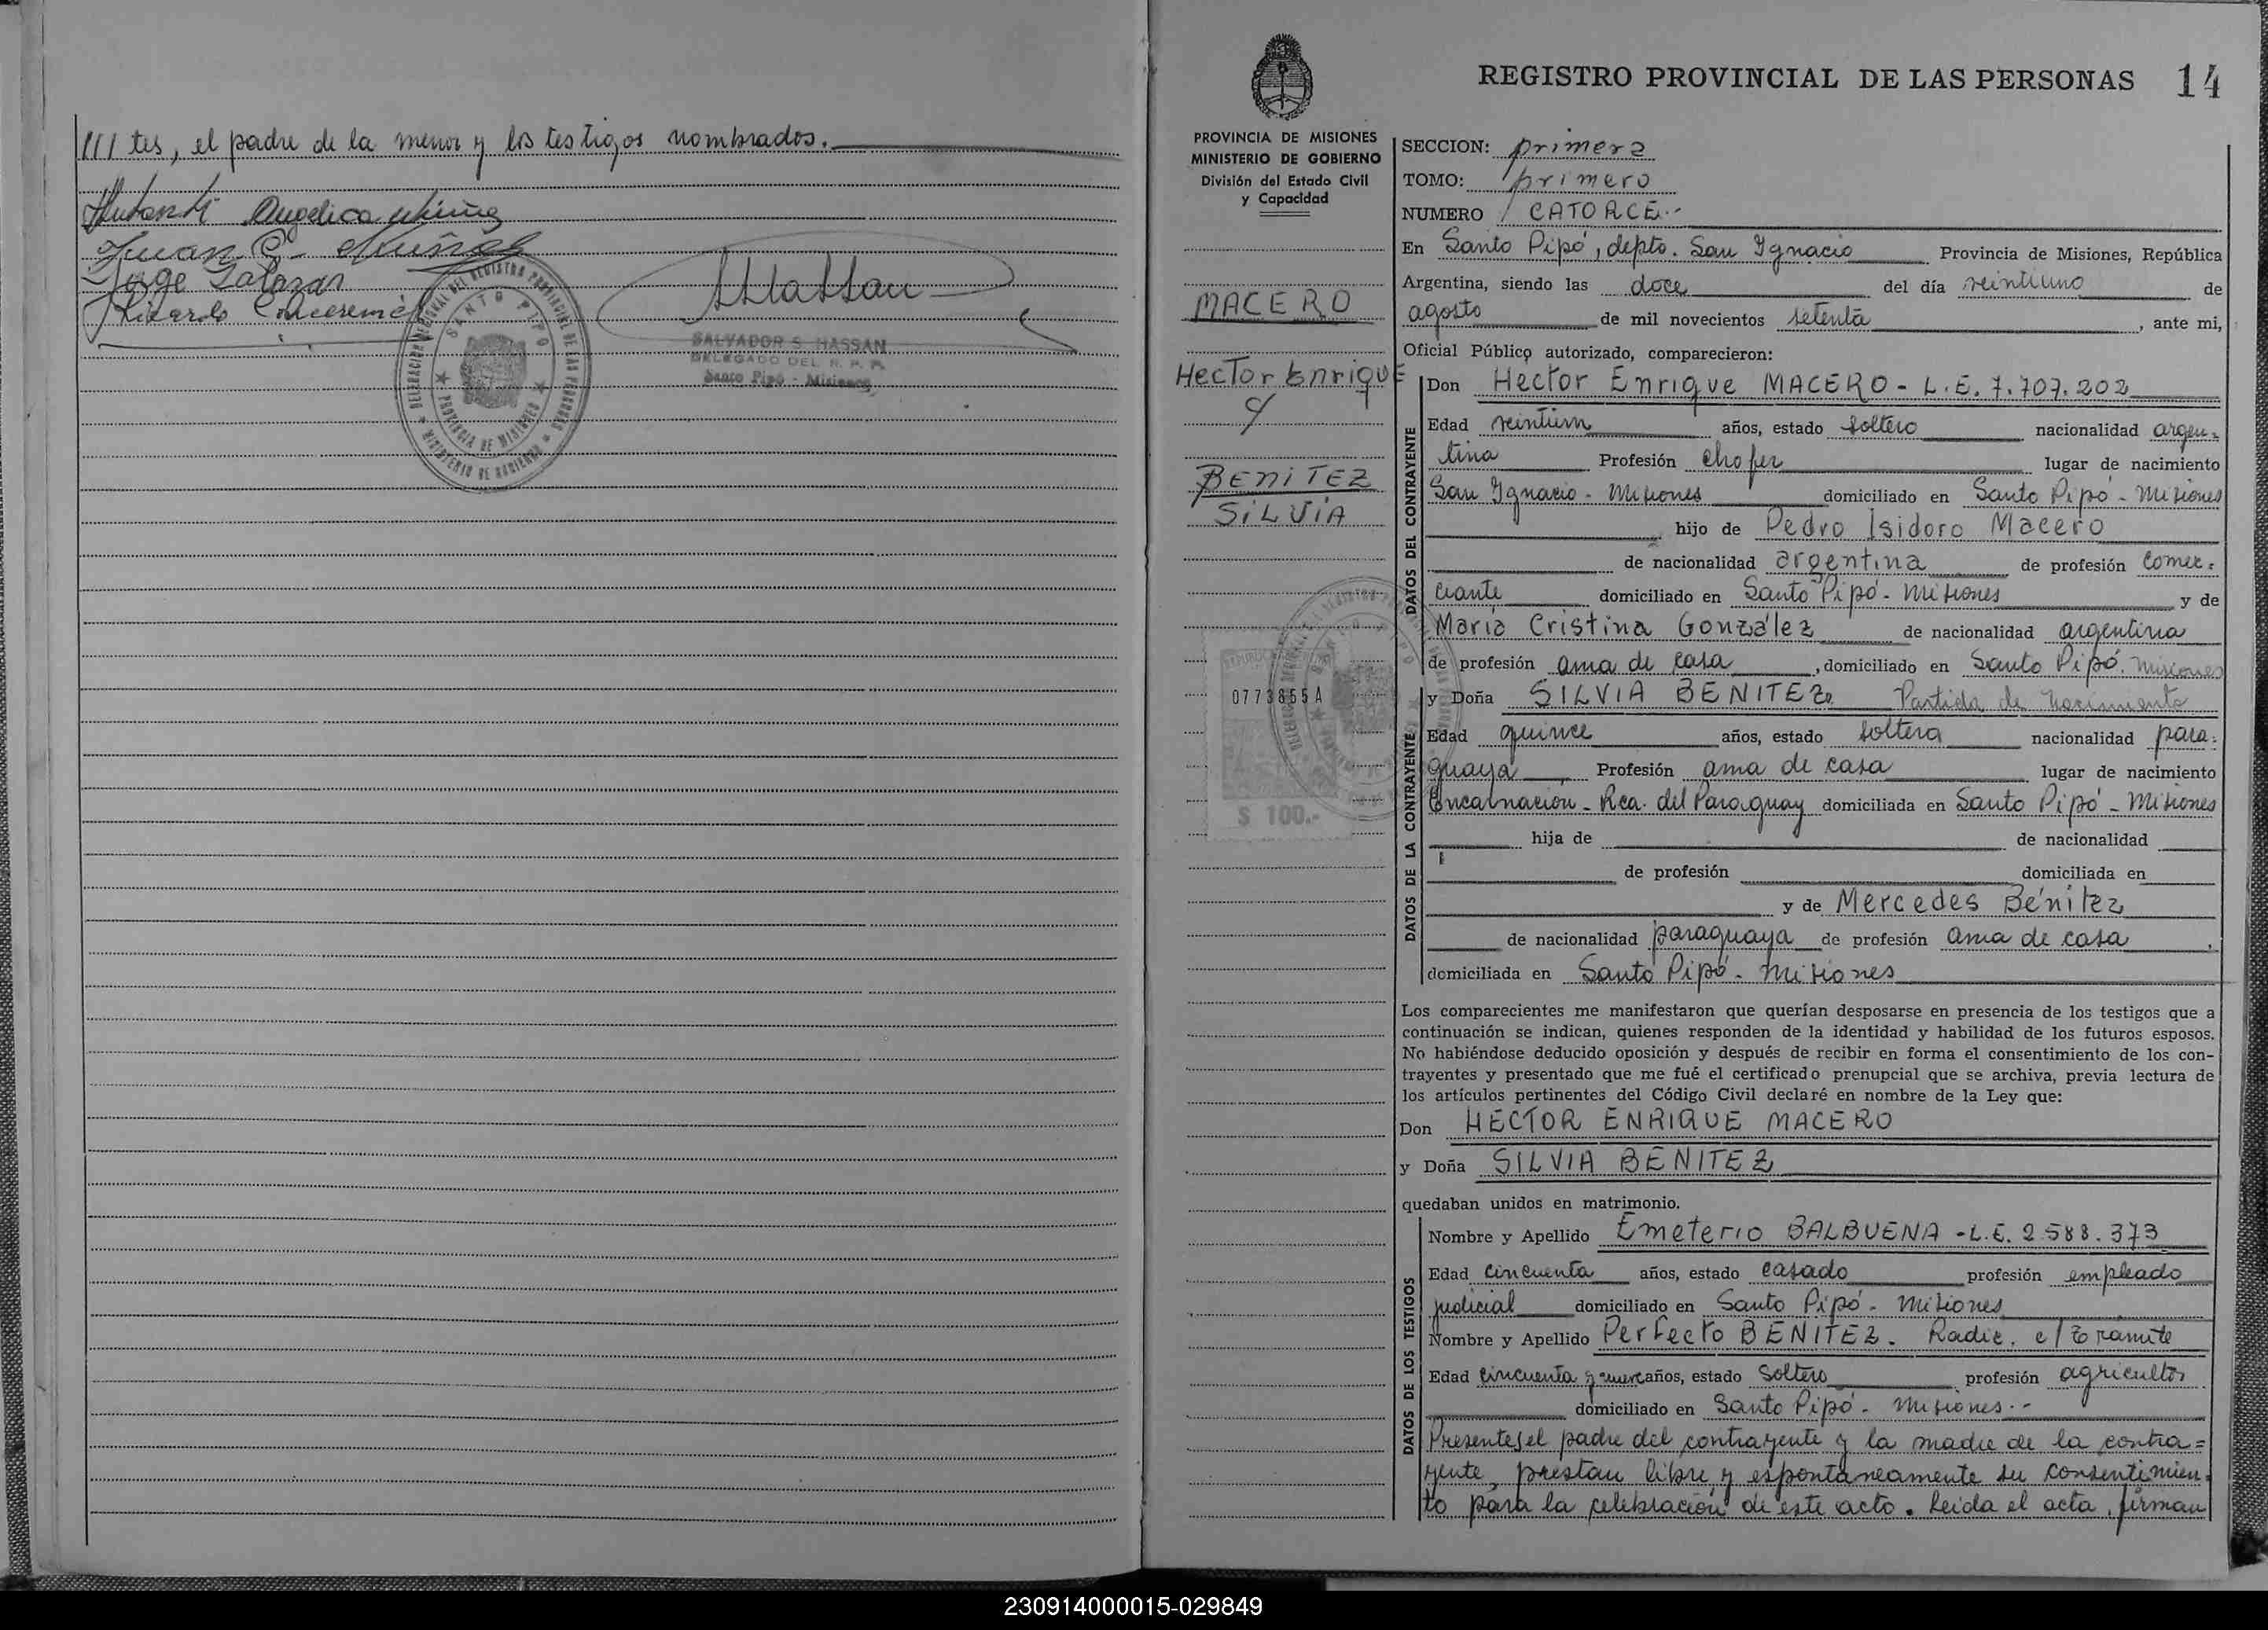 /// tes, el padre de la menor y los testigos nombrados.
Angelica
Juan C. Muñoz
Jorge Salazar
Ricardo
DELEGACION REGIONAL DEL REGISTRO PROVINCIAL DE LAS PERSONAS
SANTO PIPO
PROVINCIA DE MISIONES
SALVADOR S. HASSAN
DELEGADO DEL R. P. P.
Santo Pipó - Misiones
REGISTRO PROVINCIAL DE LAS PERSONAS 14
PROVINCIA DE MISIONES
MINISTERIO DE GOBIERNO
División del Estado Civil
y Capacidad
MACERO
Hector Enrique
y
BENITEZ
SILVIA
0773855A
$ 100.-
SECCION: primera
TOMO: primero
NUMERO / CATORCE.-
En Santo Pipó, depto. San Ignacio Provincia de Misiones, República
Argentina, siendo las doce del día veintiuno de
agosto de mil novecientos setenta, ante mi,
Oficial Público autorizado, comparecieron:
DATOS DEL CONTRAYENTE
Don Hector Enrique MACERO - L.E. 7.707.202
Edad veintiun años, estado soltero nacionalidad argen-
tina Profesión chofer lugar de nacimiento
San Ignacio - Misiones domiciliado en Santo Pipó - Misiones
hijo de Pedro Isidoro Macero
de nacionalidad argentina de profesión comer-
ciante domiciliado en Santo Pipó - Misiones y de
María Cristina González de nacionalidad argentina
de profesión ama de casa, domiciliado en Santo Pipó. Misiones
DATOS DE LA CONTRAYENTE
y Doña SILVIA BENITEZ Partida de Nacimiento
Edad quince años, estado soltera nacionalidad para-
guaya, Profesión ama de casa lugar de nacimiento
Encarnación - Rca. del Paraguay domiciliada en Santo Pipó - Misiones
hija de de nacionalidad
de profesión domiciliada en
y de Mercedes Bénitez
de nacionalidad paraguaya de profesión ama de casa,
domiciliada en Santo Pipó - Misiones
Los comparecientes me manifestaron que querían desposarse en presencia de los testigos que a
continuación se indican, quienes responden de la identidad y habilidad de los futuros esposos.
No habiéndose deducido oposición y después de recibir en forma el consentimiento de los con-
trayentes y presentado que me fué el certificado prenupcial que se archiva, previa lectura de
los artículos pertinentes del Código Civil declaré en nombre de la Ley que:
Don HECTOR ENRIQUE MACERO
y Doña SILVIA BENITEZ
quedaban unidos en matrimonio.
DATOS DE LOS TESTIGOS
Nombre y Apellido Emeterio BALBUENA - L.E. 2.588.373
Edad cincuenta años, estado casado profesión empleado
judicial domiciliado en Santo Pipó - Misiones
Nombre y Apellido Perfecto BENITEZ. Radic. e/ trámite
Edad cincuenta y nueve años, estado soltero profesión agricultor
domiciliado en Santo Pipó - Misiones.-
Presentes el padre del contrayente y la madre de la contra=
yente, prestan libre y espontáneamente su consentimien-
to para la celebración de este acto. Leída el acta, firman
230914000015-029849